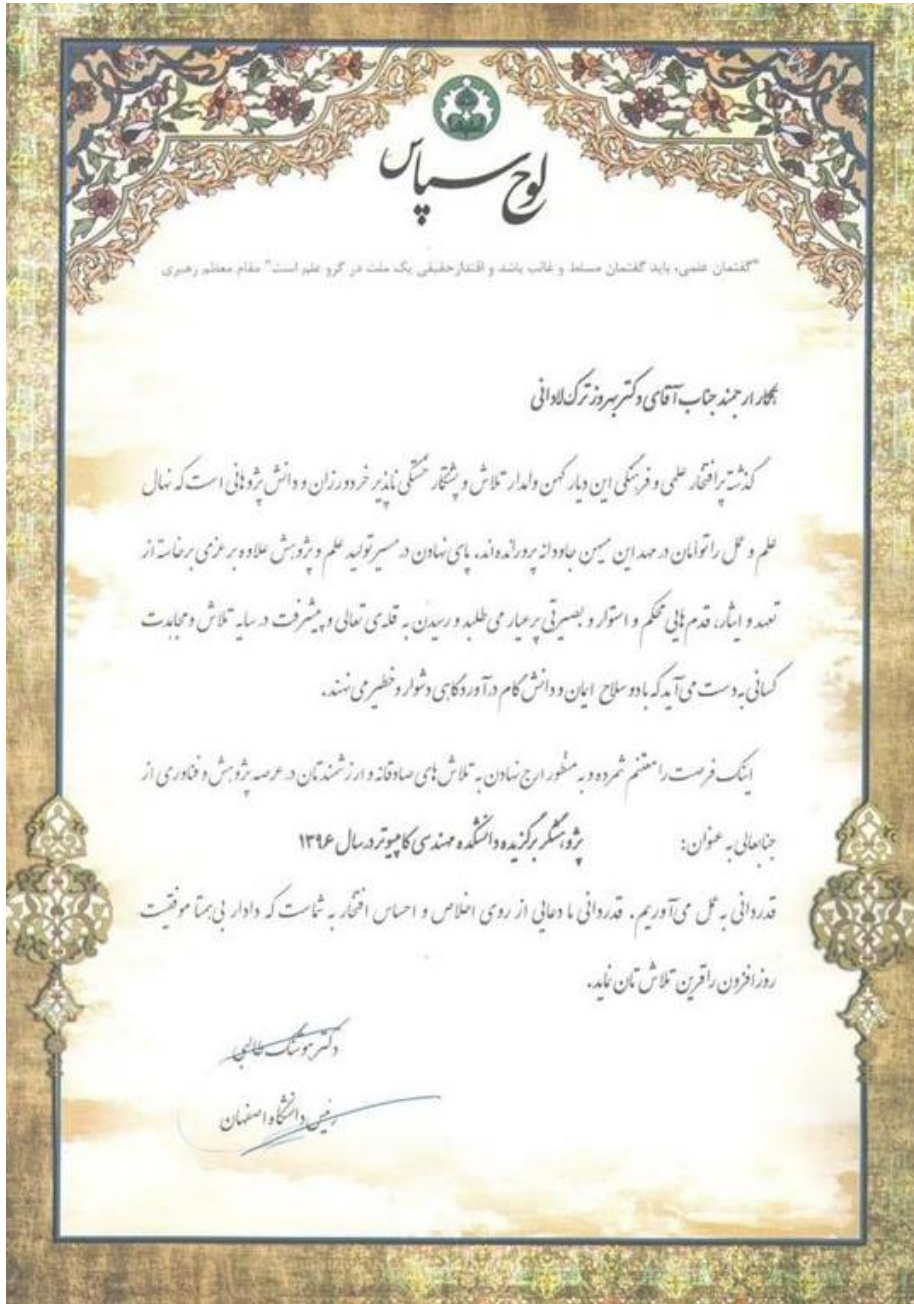 لوح سپاس
"گفتمان علمی، باید گفتمان مسلط و غالب باشد و اقتدار حقیقی یک ملت در گرو علم است" مقام معظم رهبری
همکار ارجمند جناب آقای دکتر بهروز ترک لادانی
گذشته پرافتخار علمی و فرهنگی این دیار کهن وامدار تلاش و پشتکار خستگی ناپذیر خردورزان و دانش پژوهانی است که نهال
علم و عمل را توأمان در مهد این میهن جاودانه پرورانده‌اند. پای نهادن در مسیر تولید علم و پژوهش علاوه بر عزمی برخاسته از
تعهد و ایثار، قدم هایی محکم و استوار و بصیرتی پرعیار می طلبد و رسیدن به قله‌ی تعالی و پیشرفت در سایه تلاش و مجاهدت
کسانی به دست می آید که با دو سلاح ایمان و دانش گام در آوردگاهی دشوار و خطیر می نهند.
اینک فرصت را مغتنم شمرده و به منظور ارج نهادن به تلاش های صادقانه و ارزشمندتان در عرصه پژوهش و فناوری از
جنابعالی به عنوان: پژوهشگر برگزیده دانشکده مهندسی کامپیوتر در سال ۱۳۹۶
قدردانی به عمل می آوریم. قدردانی ما دعایی از روی اخلاص و احساس افتخار به شماست که دادار بی همتا موفقیت
روزافزون را قرین تلاش تان نماید.
دکتر هوشنگ طالبی
رئیس دانشگاه اصفهان